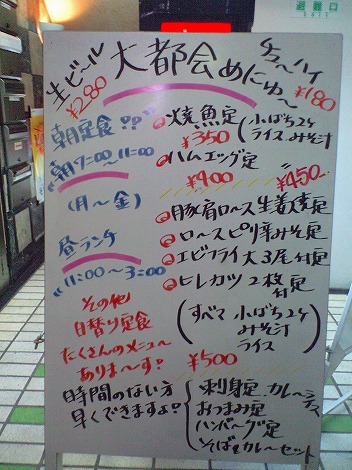 避難口
生ビール
¥280
大都会めにゅ〜
チューハイ
¥180
朝定食??
朝7:00〜11:00
(月〜金)
焼魚定
¥350
(小ばち2ケ
ライス みそ汁
ハムエッグ定
¥400
¥450
昼ランチ
11:00〜3:00
豚肩ロース生姜焼定
ロースピリ辛みそ定
エビフライ大3尾付定
ヒレカツ2枚付定
(すべて小ばち2ケ
みそ汁
ライス)
¥500
その他
日替り定食
たくさんのメニュー
ありま〜す!
時間のない方
早くできますよ!
刺身定 カレーライス
おつまみ定
ハンバーグ定
そば&カレーセット